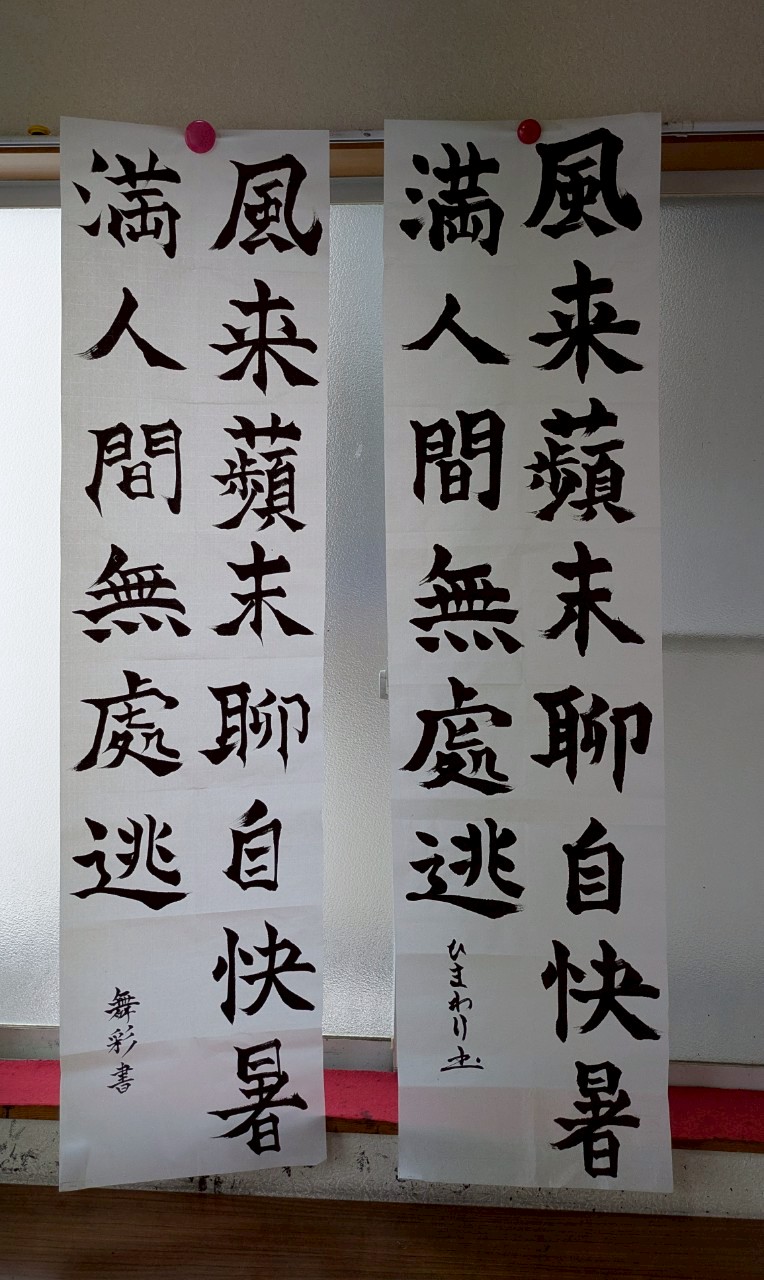 風来蘋末聊自快暑
満人間無處逃
ひまわり書
風来蘋末聊自快暑
満人間無處逃
舞彩書